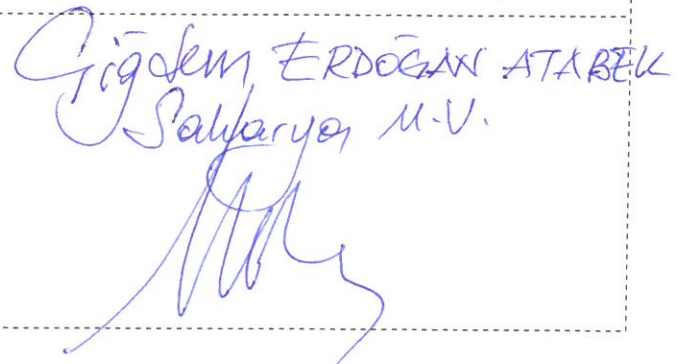 Çiğdem ERDOĞAN ATABEK
Sakarya M.V.